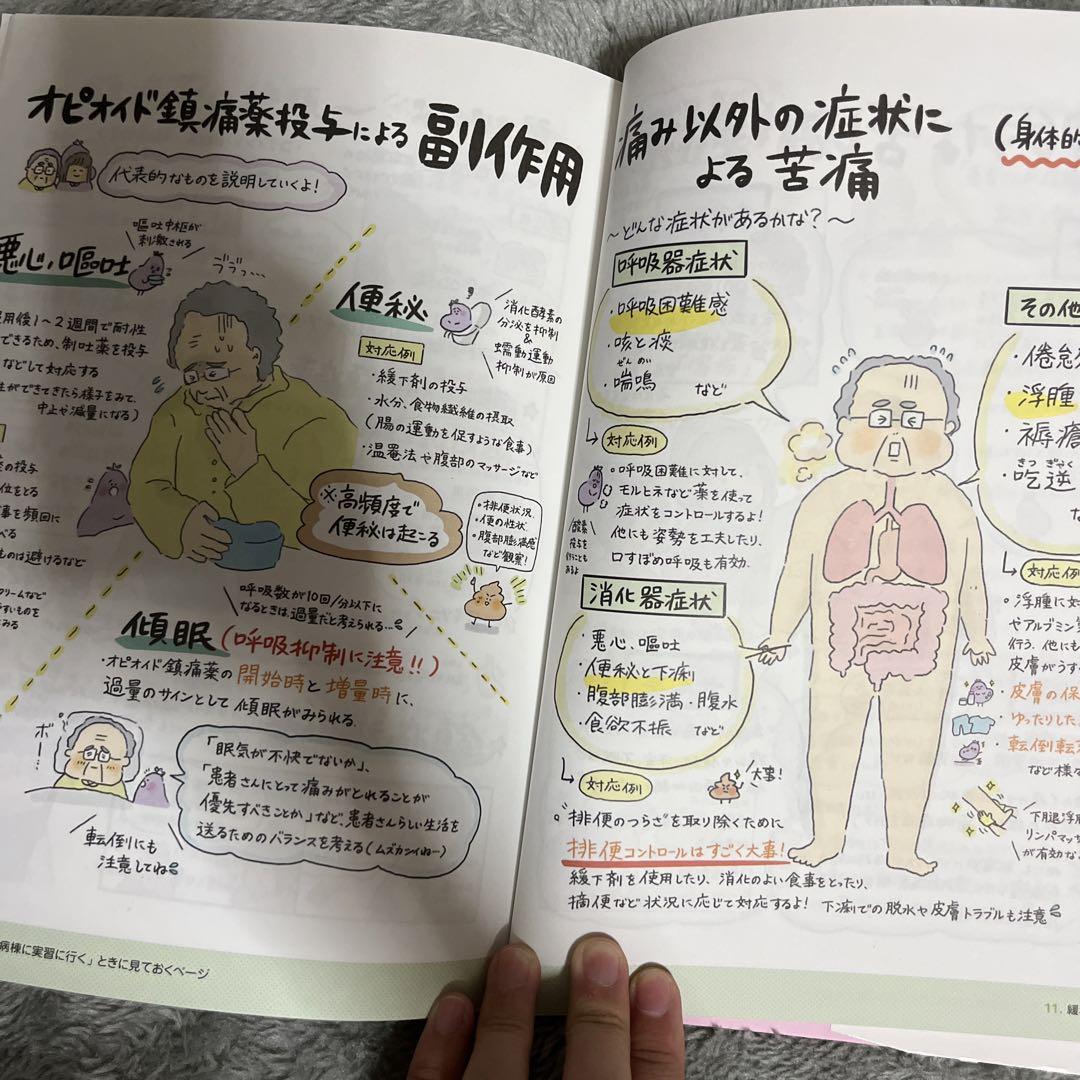 オピオイド鎮痛薬投与による 副作用
代表的なものを説明していくよ!
悪心、嘔吐
嘔吐中枢が
刺激される
用後1~2週間で耐性
できるため、制吐薬を投与
などして対応する
性ができてきたら様子をみて、
中止や減量になる)
の投与
位をとる
事を頻回に
べる
ものは避けるなど
クリームなど
すいものを
みる
便秘
消化酵素の
分泌を抑制
&
蠕動運動
抑制が原因
対応例
・緩下剤の投与
・水分、食物繊維の摂取
(腸の運動を促すような食事)
・温罨法や腹部のマッサージなど
※高頻度で
便秘は起こる
・排便状況
・便の性状
・腹部膨満感
など観察!
呼吸数が10回/分以下に
なるときは、過量だと考えられる…
傾眠(呼吸抑制に注意!!)
・オピオイド鎮痛薬の開始時と増量時に、
過量のサインとして傾眠がみられる.
ボー…
「眠気が不快でないか」、
「患者さんにとって痛みがとれることが
優先すべきことか」など、患者さんらしい生活を
送るためのバランスを考える(ムズカシイねー)
転倒にも
注意してね
病棟に実習に行く」ときに見ておくページ
痛み以外の症状に
よる苦痛
(身体的
~どんな症状があるかな?~
呼吸器症状
・呼吸困難感
・咳と痰
ぜんめい
・喘鳴 など
対応例
・呼吸困難に対して、
モルヒネなど薬を使って
症状をコントロールするよ!
他にも姿勢を工夫したり、
口すぼめ呼吸も有効.
酸素
投与を
行うことも
あるよ
消化器症状
・悪心、嘔吐
・便秘と下痢
・腹部膨満・腹水
・食欲不振 など
対応例
大事!
"排便のつらさ"を取り除くために
排便コントロールはすごく大事!
緩下剤を使用したり、消化のよい食事をとったり、
摘便など状況に応じて対応するよ! 下痢での脱水や皮膚トラブルも注意
その他
・倦怠
・浮腫
・褥瘡
きつぎゃく
・吃逆
対応例
・浮腫に対
やアルブミン
行う.他にも
皮膚がうす
・皮膚の保
・ゆったりした
・転倒転
など様
下腿浮腫
リンパマッ
が有効な
11. 緩